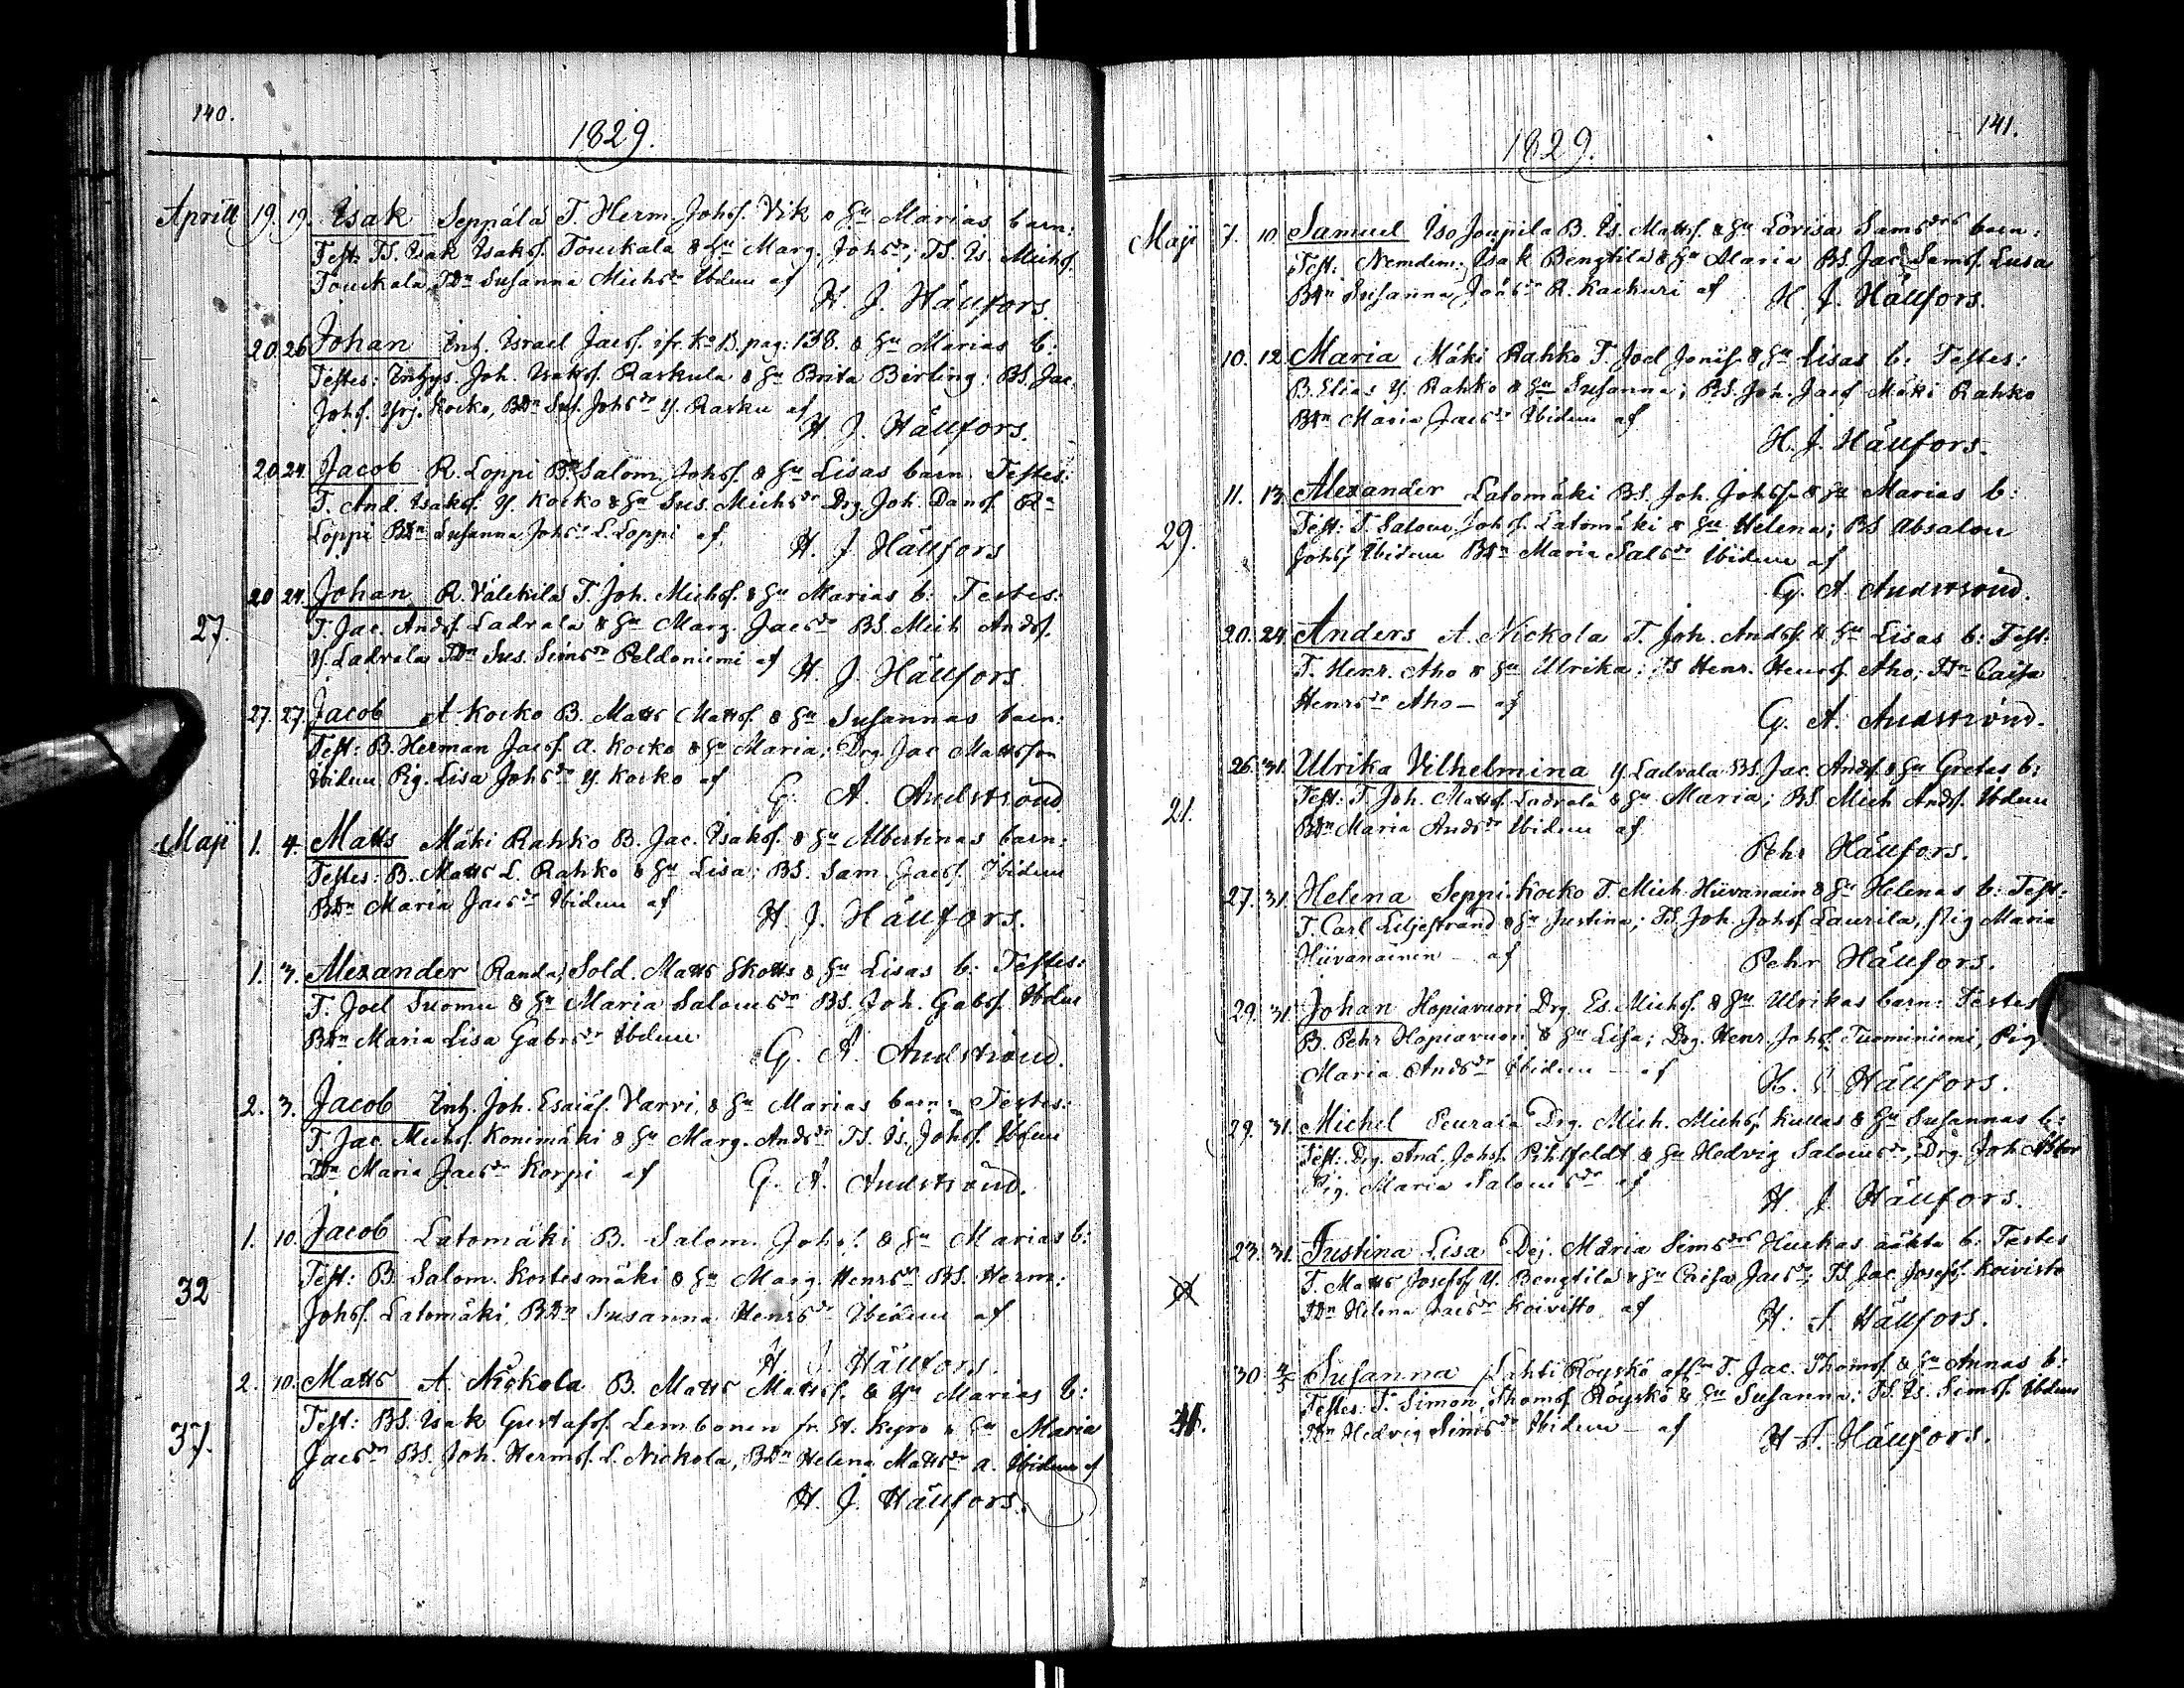 140.
1829.
Aprill 19. 19. Isak Seppälä T. Herm. Johsf. Vik & Hu Marias barn:
Test: TS. Isak Isaksf. Touckala & Hu Marg. Johsdr; TS. Is. Michsf.
Touckala, TDn Susanna Michsdr Ibdem af
H. J. Hällfors.
20. 26 Johan Inh. Israel Jacsf. ifr. Ko B. pag: 138. & Hu Marias b:
Testes: Inhys. Joh. Isaksf. Raskula & Hu Brita Birling: BS. Jac.
Johsf. Yrj. Kocko, BDn Sus. Johsdr Y. Rasku af
H. J. Hällfors.
20. 24. Jacob R. Loppi BS. Salom. Johsf. & Hu Lisas barn. Testes:
T. And. Isaksf. Y. Kocko & Hu Sus. Michsdr Drg. Joh. Dansf. Rn
Loppi BDn Susanna Johsdr L. Loppi af
H. J. Hällfors
27.
20 24. Johan R. Välckilä T. Joh. Michsf. & Hu Marias b: Testes:
T. Jac. Andsf. Ladvala & Hu Marg. Jacsdr BS. Mich Andsf.
Y. Ladvala TDn Sus. Simsdr Peldoniemi af
H. J. Hällfors
27. 27. Jacob A. Kocko B. Matts Mattsf. & Hu Susannas barn:
Test: B. Herman Jacsf. A. Kocko & Hu Maria; Drg. Jac Mattsson
Ibidem Pig. Lisa Johsdr Y. Kocko af
G. A. Andströnd
Maji 1. 4. Matts Mäki Rahko B. Jac. Isaksf. & Hu Albertinas barn:
Testes: B. Matts L. Rahko & Hu Lisa: BS. Sam. Jacsf. Ibidem
BDn Maria Jacsdr Ibidem af
H. J. Hällfors.
1. 3. Alexander Randa, Sold. Matts Skotts & Hu Lisas b: Testes:
T. Joel Suomu & Hu Maria Salomsdr BS. Joh. Gabsf. Ibdem
BDn Maria Lisa Gabrsdr Ibdem
G. A. Andströnd.
2. 3. Jacob Inh. Joh. Esaiäsf. Varvi, & Hu Marias barn: Testes:
T. Jac. Michsf. Konimäki & Hu Marg. Andsdr TS. Is. Johsf. Ibdem
TDn Maria Jacsdr Korpi af
G. A. Andströnd.
32
1. 10. Jacob Latomäki B. Salom. Johsf. & Hu Marias b:
Test: B. Salom. Kortesmäki & Hu Marg. Henrsdr BS. Herm:
Johsf. Latomäki, BDn Susanna Henrsdr Ibidem af
H. J. Hällfors.
37.
2. 10. Matts A. Nickola B. Matts Mattsf. & Hu Marias b:
Test: BS. Isak Gustafsf. Lembonen fr. St. Kyro & Hu Maria
Jacsdr BS. Joh. Hermsf. L. Nickola, BDn Helena Mattsdr A. Ibidem af
H. J. Hällfors.
141.
1829.
Maji 7. 10. Samuel Iso Joupila B. Is. Mattsf. & Hu Lovisas Samsdrs barn:
Test: Nemdem. Isak Bengtila & Hu Maria BS. Jac. Samsf. Lusa
BDn Susanna Joäsdr R. Kackuri af
H. J. Hällfors.
10. 12. Maria Mäki Rahko T. Joel Jonisf. & Hu Lisas b: Testes:
B. Elias Y. Rahko & Hu Susanna; BS. Joh. Jacsf. Mäki Rahko
BDn Maria Jacsdr Ibidem af
H. J. Hällfors.
29.
11. 13. Alexander Latomäki BS. Joh. Johsf. & Hu Marias b:
Test: T. Salom. Johsf. Latomäki & Hu Helena; BS Absalon
Johsf. Ibidem BDn Maria Salsdr Ibidem af
G. A. Andströnd.
20. 24. Anders A. Nickola T. Joh. Andsf. & Hu Lisas b: Test:
T. Henr. Aho & Hu Ulrika; TS Henr. Henrsf. Aho; TDn Caisa
Henrsdr Aho – af
G. A. Andströnd.
21.
26. 31. Ulrika Vilhelmina Y. Ladvala BS. Jac. Andsf. & Hu Gretas b:
Test: T. Joh. Mattsf. Ladvala & Hu Maria; BS. Mich Andsf. Ibdem
BDn Maria Andsdr Ibidem af
Pehr Hällfors.
27. 31. Helena Seppi-Kocko T. Mich. Hiivanain & Hu Helenas b: Test:
T. Carl Liljestrand & Hu Justina; TS. Joh. Johsf. Laurila, Pig Maria
Hiivanainen – af
Pehr Hällfors.
29. 31. Johan Hopiavuori Drg. Es. Michsf. & Hu Ulrikas barn: Testes
B. Pehr Hopiavuori & Hu Lisa; Drg. Henr. Johsf. Tuominiemi, Pig.
Maria Andsdr Ibidem – af
H. J. Hällfors.
29. 31. Michel Peuraia Drg. Mich. Michsf. Kullas & Hu Susannas b:
Test: Drg. And. Johsf. Pihlfeldt & Hu Hedvig Salomsdr, Drg. Joh. Ablor
Pig. Maria Salomsdr af
H. J. Hällfors.
23. 31. Justina Lisa Dej. Maria Simsdrs Huckas oäkta b: Testes
T. Matts Josefsf. Y. Bengtilä & Hu Caisa Jacsdr; TS. Jac. Josefsf. Koivisto
TDn Helena Jacsdr Koivisto af
H. J. Hällfors.
30. 4/5 Susanna Lahti Röyskö T. Jac. Thomsf. & Hu Annas b:
Testes: T. Simon Thomsf. Röyskö & Hu Susanna: TS. Is. Simsf. Ibdem
TDn Hedvig Simsdr Ibidem – af
H. J. Hällfors.